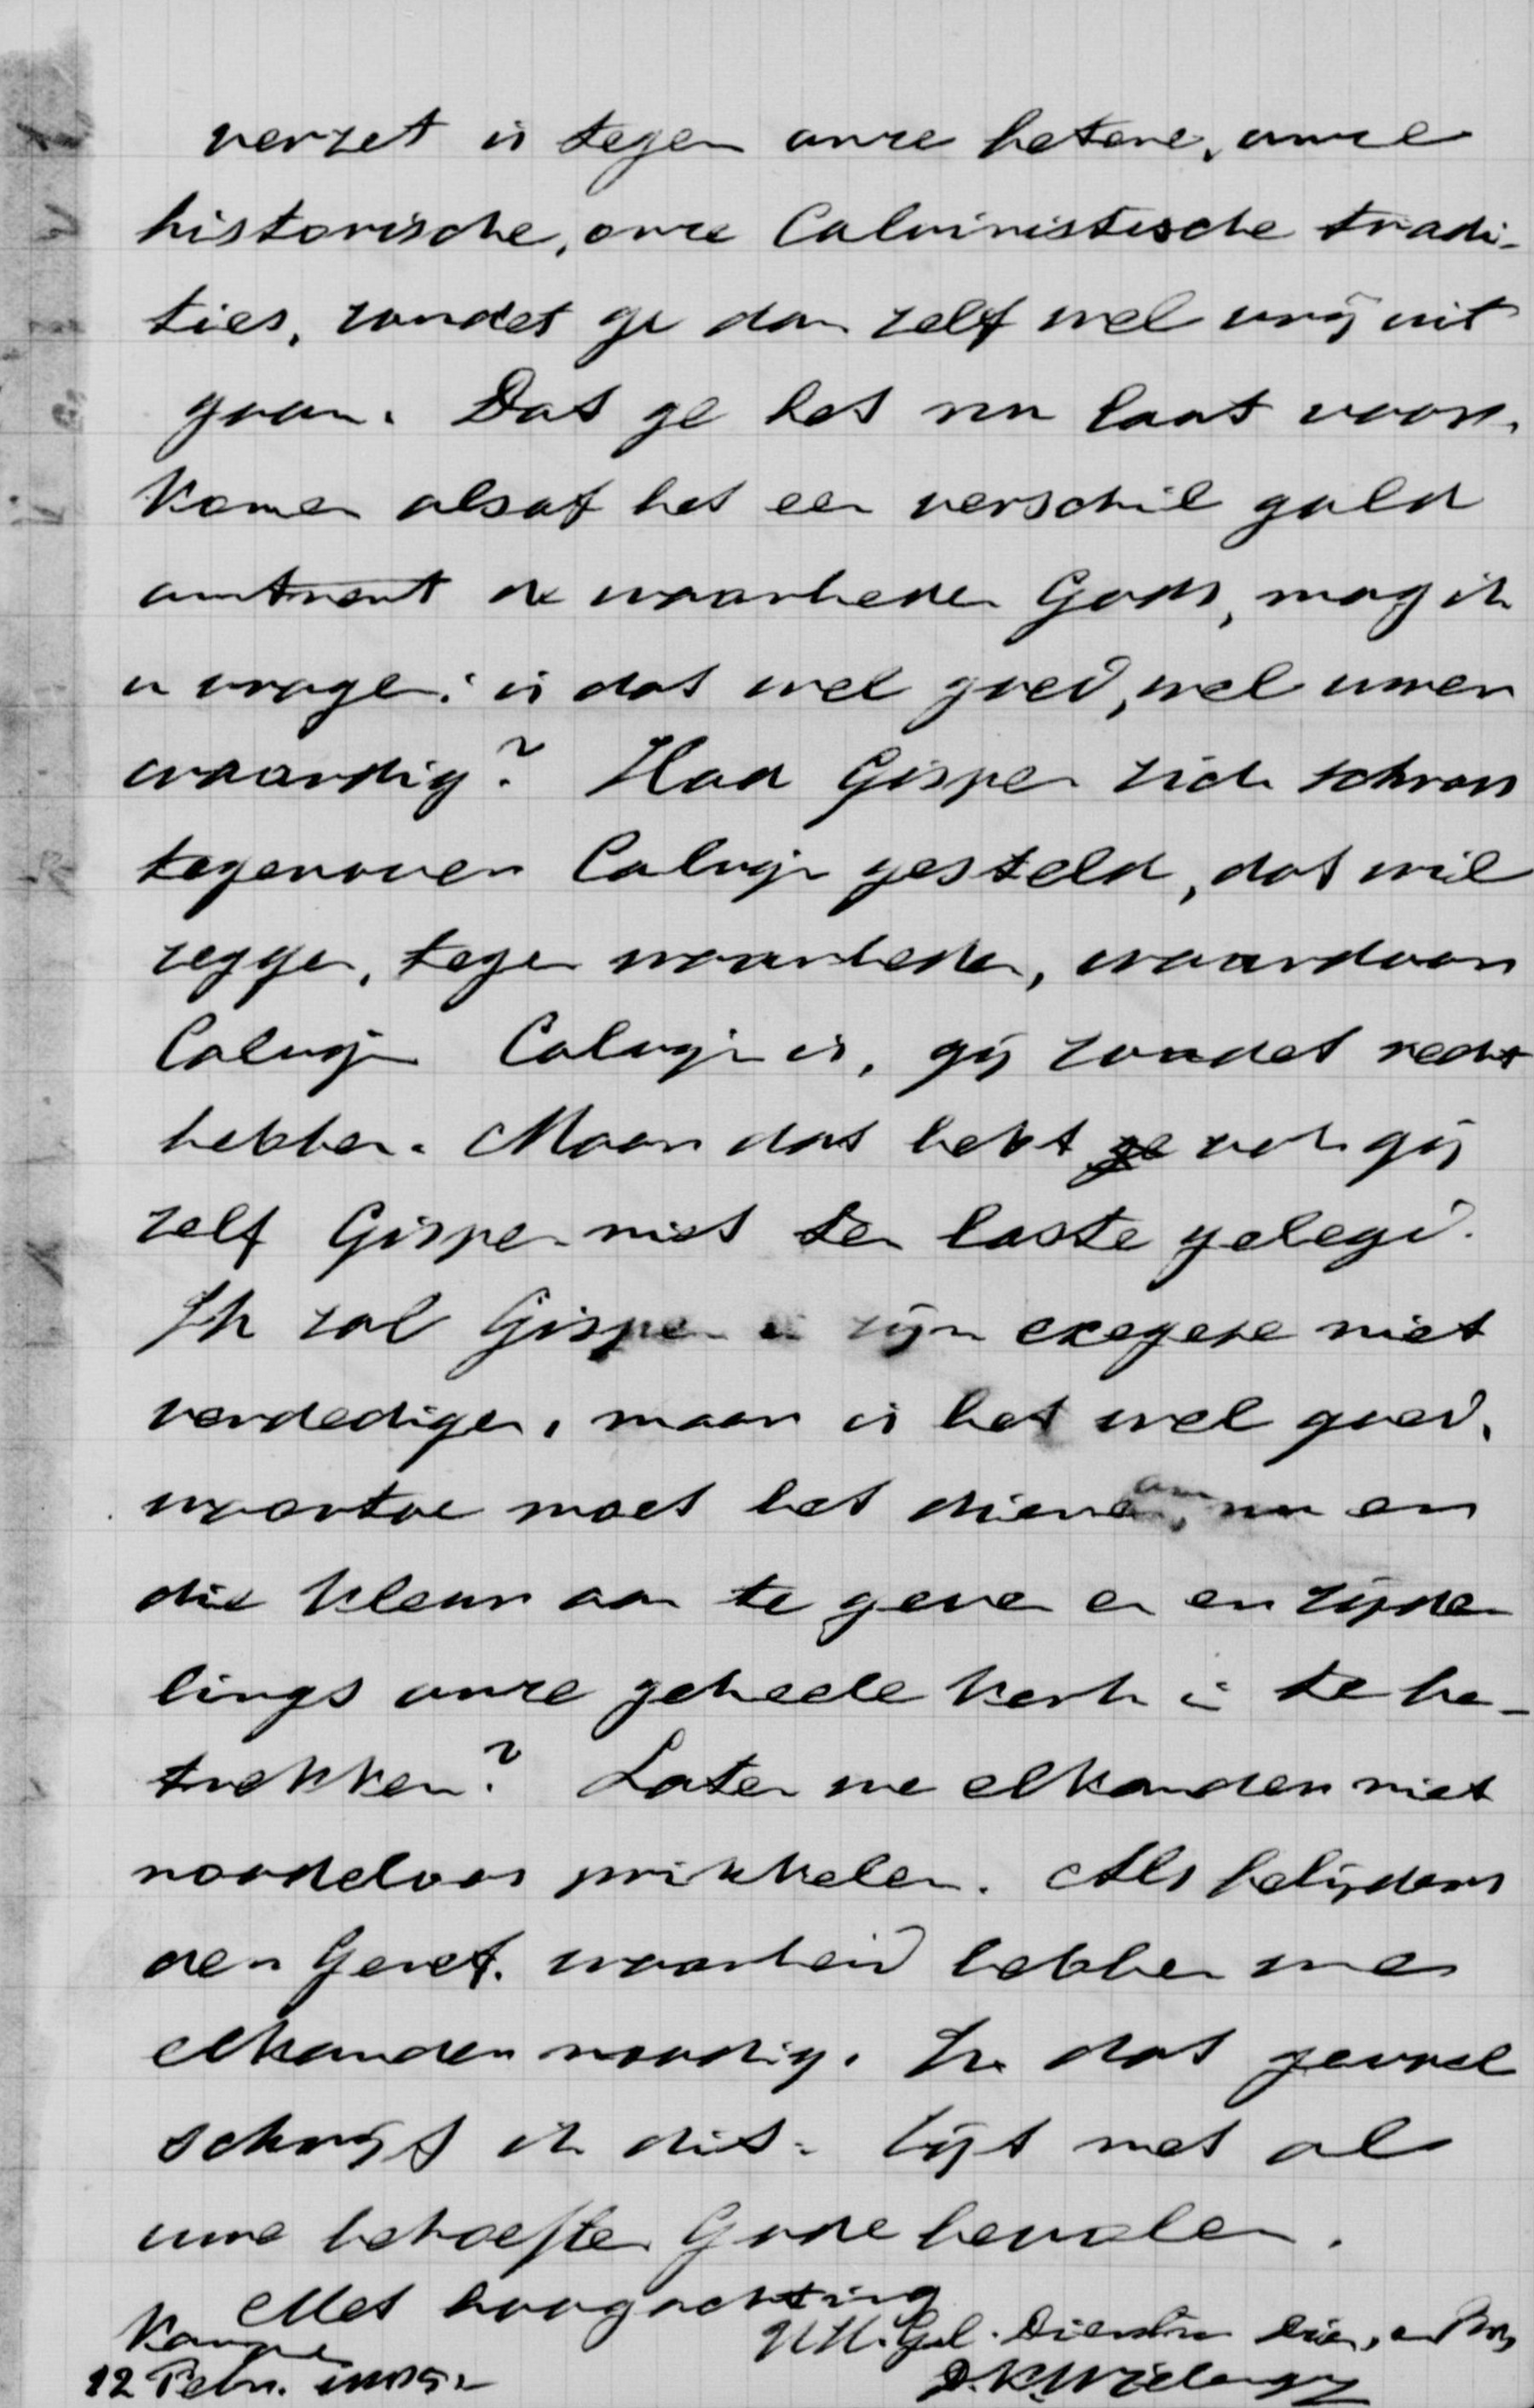 verzet is tegen onze betere, onze
historische, onze Calvinistische tradi-
ties, zoudet ge dan zelf wel vrij uit
gaan. Dat ge het nu laat voor-
komen alsof het een verschil gold
omtrent de waarheden Gods, mag ik
u vragen: is dat wel goed, wel uwer
waardig? Had Gispen zich schrap
tegenover Calvijn gesteld, dat wil
zeggen, tegen waarheden, waardoor
Calvijn Calvijn is, gij zoudet recht
hebben. Maar dat hebt ge ook gij
zelf Gispen niet ten laste gelegd.
Ik zal Gispen in zijn exegese niet
verdedigen, maar is het wel goed,
waartoe moet het dienen, om nu er
die kleur aan te geven en er zijde-
lings onze geheele kerk in te be-
trekken? Laten we elkander niet
noodeloos prikkelen. Als belijders
der Geref. waarheid hebben we
elkander noodig. In dat gevoel
schrijf ik dit. Zijt met al
uwe behoeften Gode bevolen.
Met hoogachting
UH.Gel. Dienstw. Dien. en Br,
Kampen
12 Febr.
D.K. Wielenga